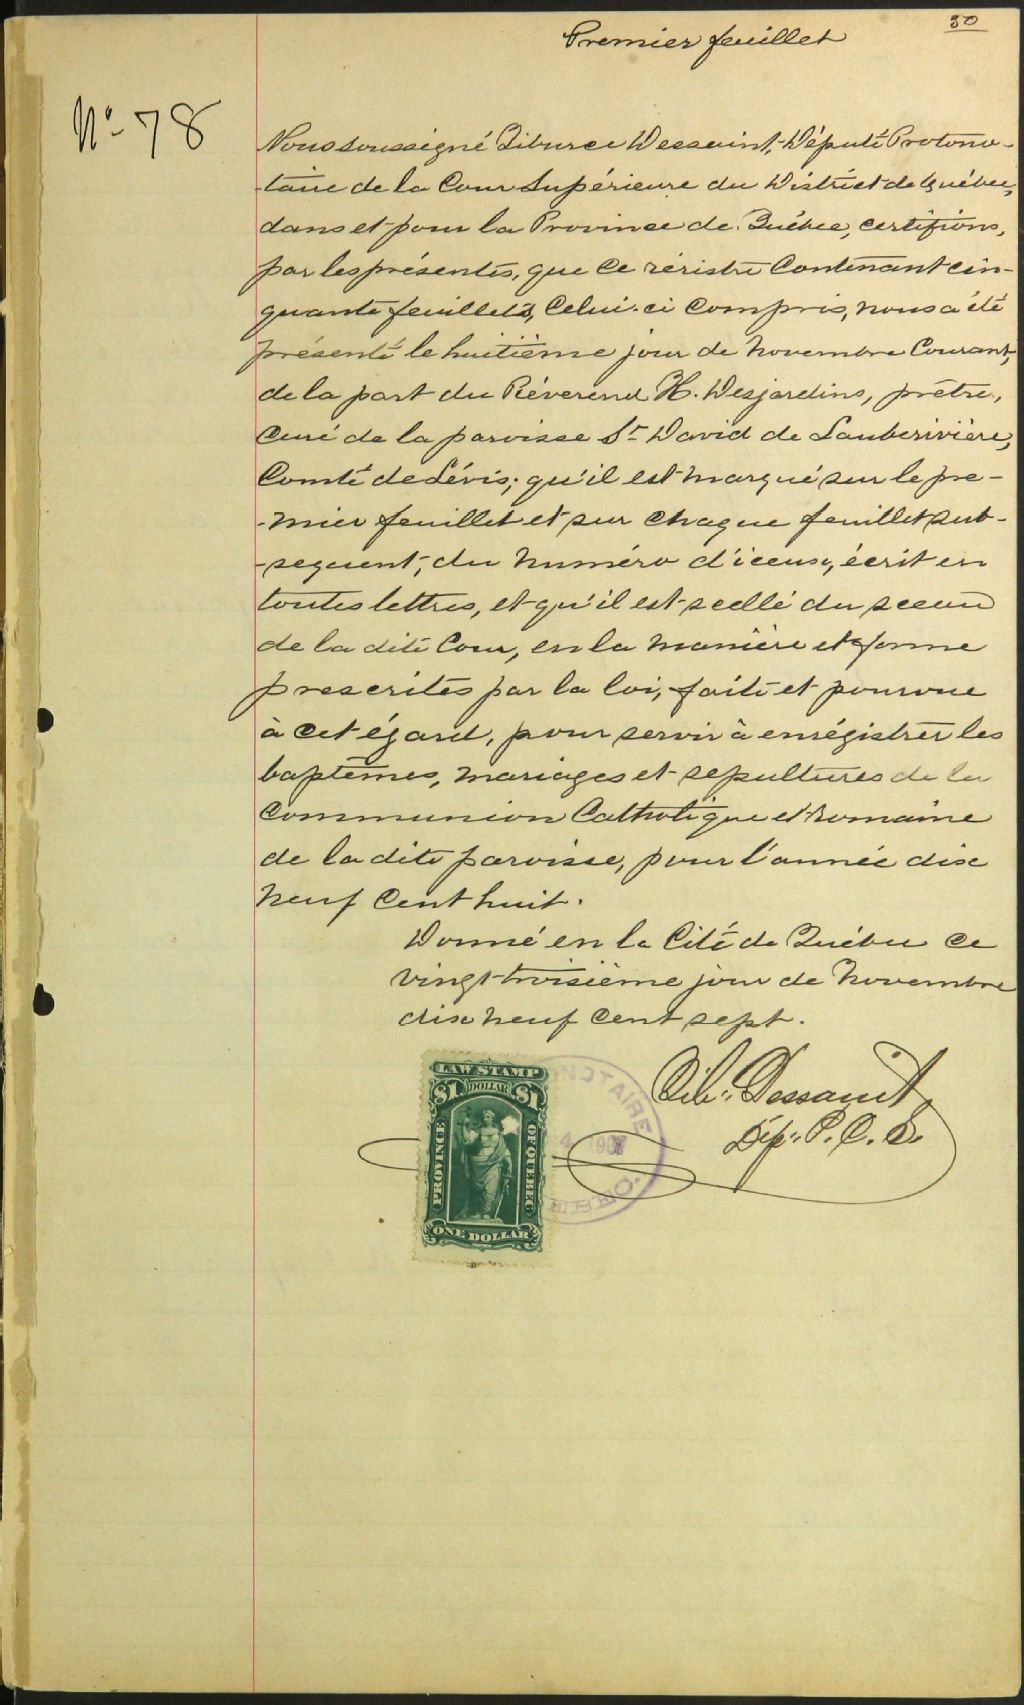 50
Premier feuillet
No 78
Nous soussigné Tiburce Dessaint, Député Protono-
-taire de la Cour Supérieure du District de Québec,
dans et pour la Province de Québec, certifions,
par les présentes, que ce réristre contenant cin-
quante feuillets, celui-ci compris, nous a été
présenté le huitième jour de novembre courant,
de la part du Réverend H. Desjardins, prêtre,
curé de la paroisse St David de Lauberivière,
Comté de Lévis; qu'il est marqué sur le pre-
-mier feuillet et sur chaque feuillet sub-
-sequent, du numéro d'iceux, écrit en
toutes lettres, et qu'il est scellé du sceau
de la dite Cour, en la manière et forme
prescrites par la loi, faite et pourvue
à cet égard, pour servir à enrégistrer les
baptêmes, mariages et sepultures de la
communion Catholique et romaine
de la dite paroisse, pour l'année dix
neuf cent huit.
Donné en la Cité de Québec ce
vingt-troisième jour de novembre
dix neuf cent sept.
Tib: Dessaint
Dép: P. C. S.
LAW STAMP
$1 DOLLAR $1
PROVINCE
OF QUEBEC
ONE DOLLAR
NOTAIRE